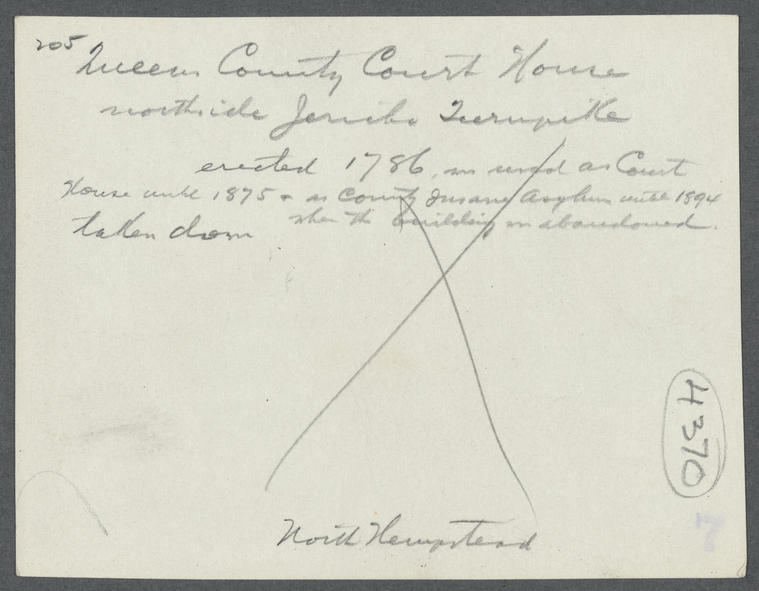 205 Queens County Court House
northside Jericho Turnpike
erected 1786, was used as Court
House until 1875 & as County Insane Asylum until 1894
when the building was abandoned.
taken down
4370
7
North Hempstead